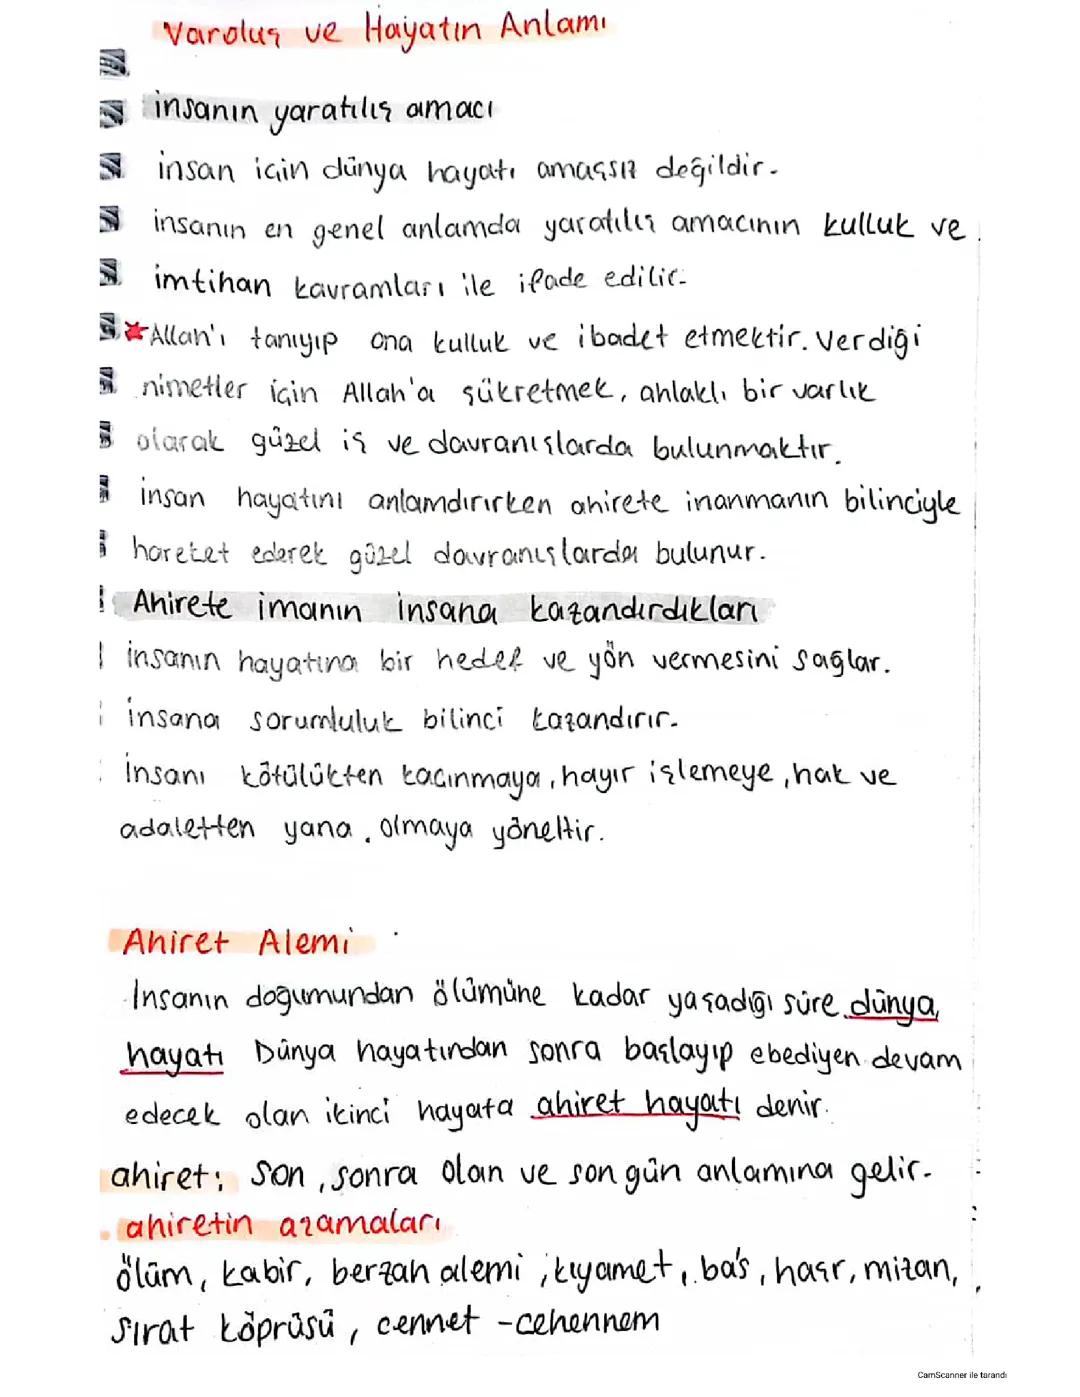 Varoluş ve Hayatın Anlamı
insanın yaratılış amacı
insan için dünya hayatı amaçsız değildir.
insanın en genel anlamda yaratılış amacının kulluk ve
imtihan kavramları ile ifade edilir.
Allah'ı tanıyıp ona kulluk ve ibadet etmektir. Verdiği
nimetler için Allah'a şükretmek, ahlaklı bir varlık
olarak güzel iş ve davranışlarda bulunmaktır.
insan hayatını anlamdırırken ahirete inanmanın bilinciyle
hareket ederek güzel davranışlarda bulunur.
Ahirete imanın insana kazandırdıkları
insanın hayatına bir hedef ve yön vermesini sağlar.
insana sorumluluk bilinci kazandırır.
insanı kötülükten kaçınmaya, hayır işlemeye, hak ve
adaletten yana olmaya yöneltir.
Ahiret Alemi
İnsanın doğumundan ölümüne kadar yaşadığı süre dünya
hayatı Dünya hayatından sonra başlayıp ebediyen devam
edecek olan ikinci hayata ahiret hayatı denir.
ahiret: Son, sonra olan ve son gün anlamına gelir.
ahiretin aşamaları
ölüm, kabir, berzah alemi, kıyamet, ba's, haşr, mizan,
sırat köprüsü, cennet - cehennem
CamScanner ile tarandı